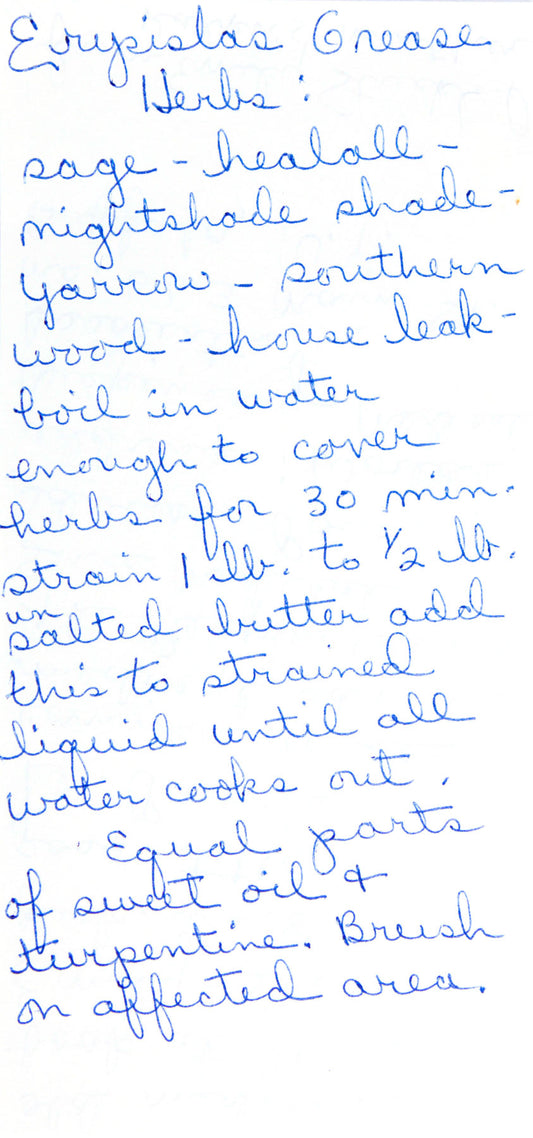 Erypislas Grease
Herbs:
sage - healall -
nightshade shade -
yarrow - southern
wood - house leak -
boil in water
enough to cover
herbs for 30 min.
strain 1 lb. to 1/2 lb.
un
salted butter add
this to strained
liquid until all
water cooks out.
Equal parts
of sweet oil &
turpentine. Brush
on affected area.